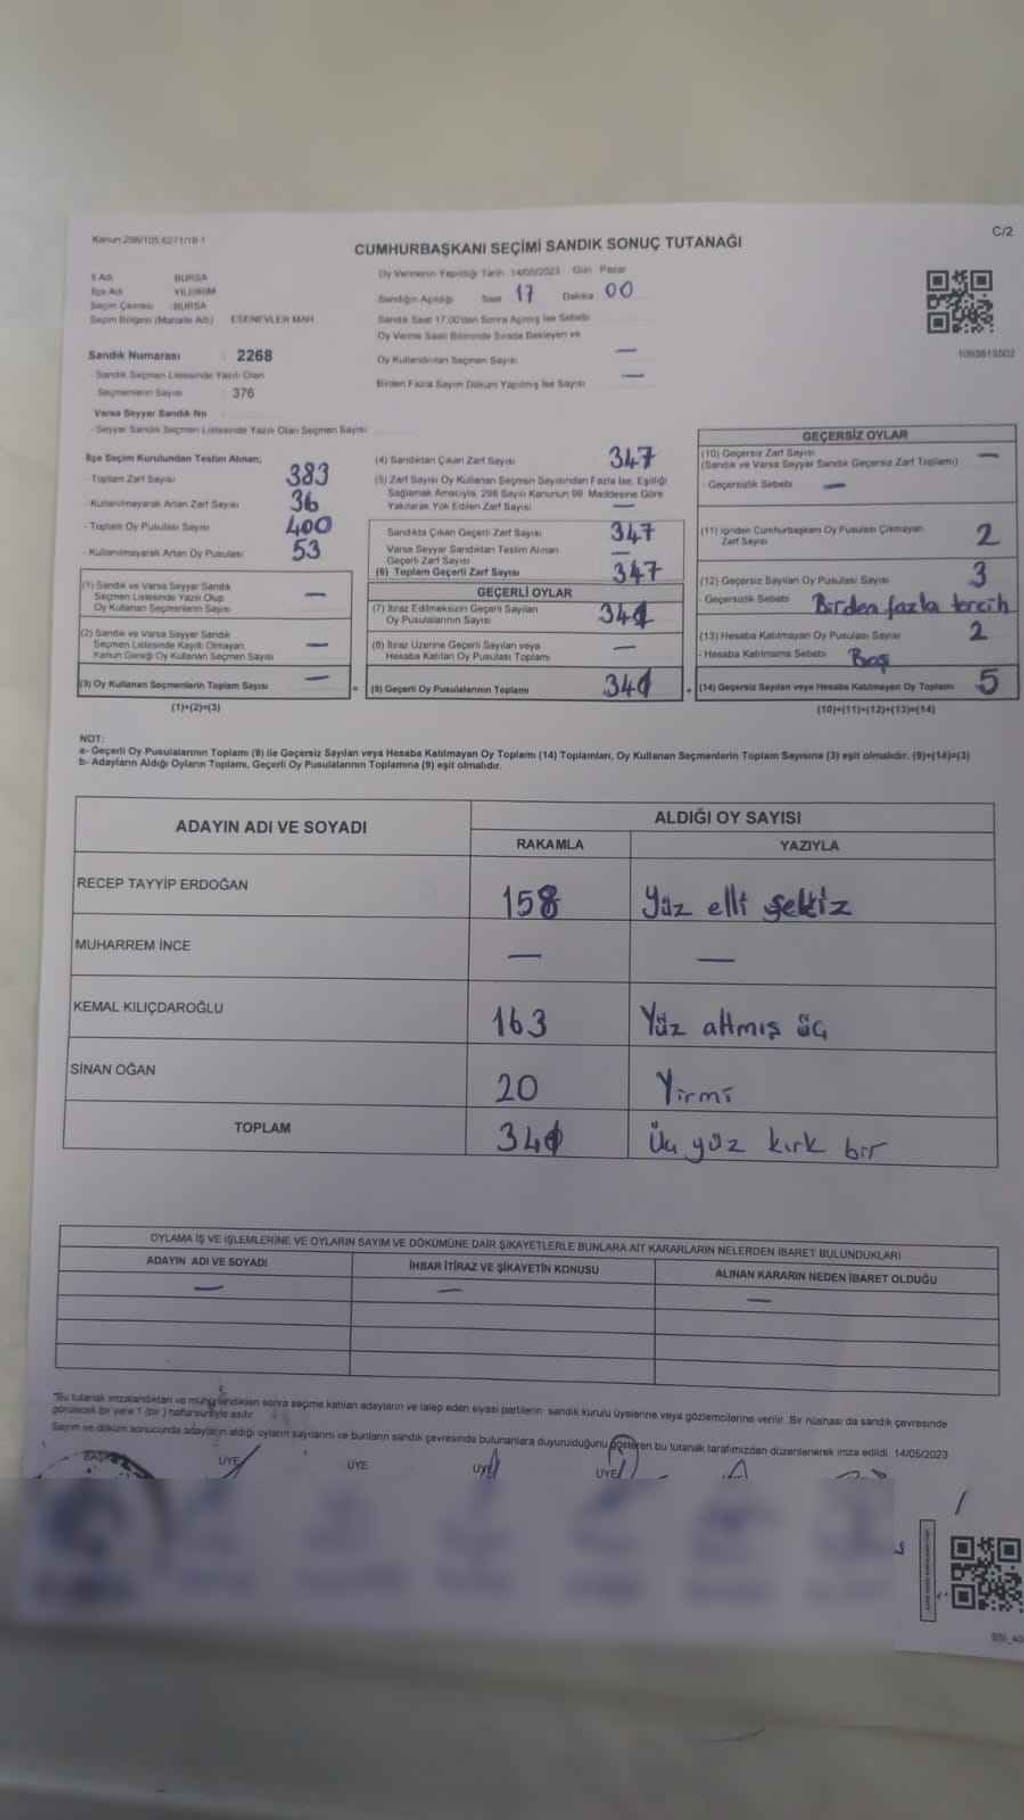 C/2
CUMHURBAŞKANI SEÇİMİ SANDIK SONUÇ TUTANAĞI
İl Adı BURSA
İlçe Adı YILDIRIM
Seçim Çevresi BURSA
Seçim Bölgesi (Mahalle Adı) ESENEVLER MAH
Sandık Numarası 2268
Sandık Seçmen Listesinde Yazılı Olan
Seçmenlerin Sayısı 376
Varsa Seyyar Sandık No
- Seyyar Sandık Seçmen Listesinde Yazılı Olan Seçmen Sayısı
Oy Vermenin Yapıldığı Tarih 14/05/2023 Gün Pazar
Sandığın Açıldığı Saat 17 Dakika 00
Sandık Saat 17:00'dan Sonra Açılmış İse Sebebi
Oy Verme Saati Bitiminde Sırada Bekleyen ve
Oy Kullandırılan Seçmen Sayısı —
Birden Fazla Sayım Döküm Yapılmış İse Sayısı —
İlçe Seçim Kurulundan Teslim Alınan;
- Toplam Zarf Sayısı 383
- Kullanılmayarak Artan Zarf Sayısı 36
- Toplam Oy Pusulası Sayısı 400
- Kullanılmayarak Artan Oy Pusulası 53
(1) Sandık ve Varsa Seyyar Sandık
Seçmen Listesinde Yazılı Olup
Oy Kullanan Seçmenlerin Sayısı —
(2) Sandık ve Varsa Seyyar Sandık
Seçmen Listesinde Kayıtlı Olmayan
Kanun Gereği Oy Kullanan Seçmen Sayısı —
(3) Oy Kullanan Seçmenlerin Toplam Sayısı —
(1)+(2)=(3)
(4) Sandıktan Çıkan Zarf Sayısı 347
(5) Zarf Sayısı Oy Kullanan Seçmen Sayısından Fazla İse, Eşitliği
Sağlamak Amacıyla, 298 Sayılı Kanunun 98. Maddesine Göre
Yakılarak Yok Edilen Zarf Sayısı —
Sandıkta Çıkan Geçerli Zarf Sayısı 347
Varsa Seyyar Sandıktan Teslim Alınan
Geçerli Zarf Sayısı —
(6) Toplam Geçerli Zarf Sayısı 347
GEÇERLİ OYLAR
(7) İtiraz Edilmeksizin Geçerli Sayılan
Oy Pusulalarının Sayısı 341
(8) İtiraz Üzerine Geçerli Sayılan veya
Hesaba Katılan Oy Pusulası Toplamı —
= (9) Geçerli Oy Pusulalarının Toplamı 341
GEÇERSİZ OYLAR
(10) Geçersiz Zarf Sayısı —
(Sandık ve Varsa Seyyar Sandık Geçersiz Zarf Toplamı)
- Geçersizlik Sebebi —
(11) İçinden Cumhurbaşkanı Oy Pusulası Çıkmayan
Zarf Sayısı 2
(12) Geçersiz Sayılan Oy Pusulası Sayısı 3
- Geçersizlik Sebebi Birden fazla tercih
(13) Hesaba Katılmayan Oy Pusulası Sayısı 2
- Hesaba Katılmama Sebebi Boş
+ (14) Geçersiz Sayılan veya Hesaba Katılmayan Oy Toplamı 5
(10)+(11)+(12)+(13)=(14)
NOT:
a- Geçerli Oy Pusulalarının Toplamı (9) ile Geçersiz Sayılan veya Hesaba Katılmayan Oy Toplamı (14) Toplamları, Oy Kullanan Seçmenlerin Toplam Sayısına (3) eşit olmalıdır. (9)+(14)=(3)
b- Adayların Aldığı Oyların Toplamı, Geçerli Oy Pusulalarının Toplamına (9) eşit olmalıdır.
ADAYIN ADI VE SOYADI
ALDIĞI OY SAYISI
RAKAMLA YAZIYLA
RECEP TAYYİP ERDOĞAN 158 Yüz elli sekiz
MUHARREM İNCE — —
KEMAL KILIÇDAROĞLU 163 Yüz altmış üç
SİNAN OĞAN 20 Yirmi
TOPLAM 341 Üç yüz kırk bir
OYLAMA İŞ VE İŞLEMLERİNE VE OYLARIN SAYIM VE DÖKÜMÜNE DAİR ŞİKAYETLERLE BUNLARA AİT KARARLARIN NELERDEN İBARET BULUNDUKLARI
ADAYIN ADI VE SOYADI İHBAR İTİRAZ VE ŞİKAYETİN KONUSU ALINAN KARARIN NEDEN İBARET OLDUĞU
— — —
"Bu tutanak imzalandıktan ve mühürlendikten sonra seçime katılan adayların ve talep eden siyasi partilerin sandık kurulu üyelerine veya gözlemcilerine verilir. Bir nüshası da sandık çevresinde
görülecek bir yere 1 (bir) hafta süreyle asılır.
Sayım ve döküm sonucunda adayların aldığı oyların sayılarını ve bunların sandık çevresinde bulunanlara duyurulduğunu gösteren bu tutanak tarafımızdan düzenlenerek imza edildi. 14/05/2023
ÜYE ÜYE ÜYE ÜYE